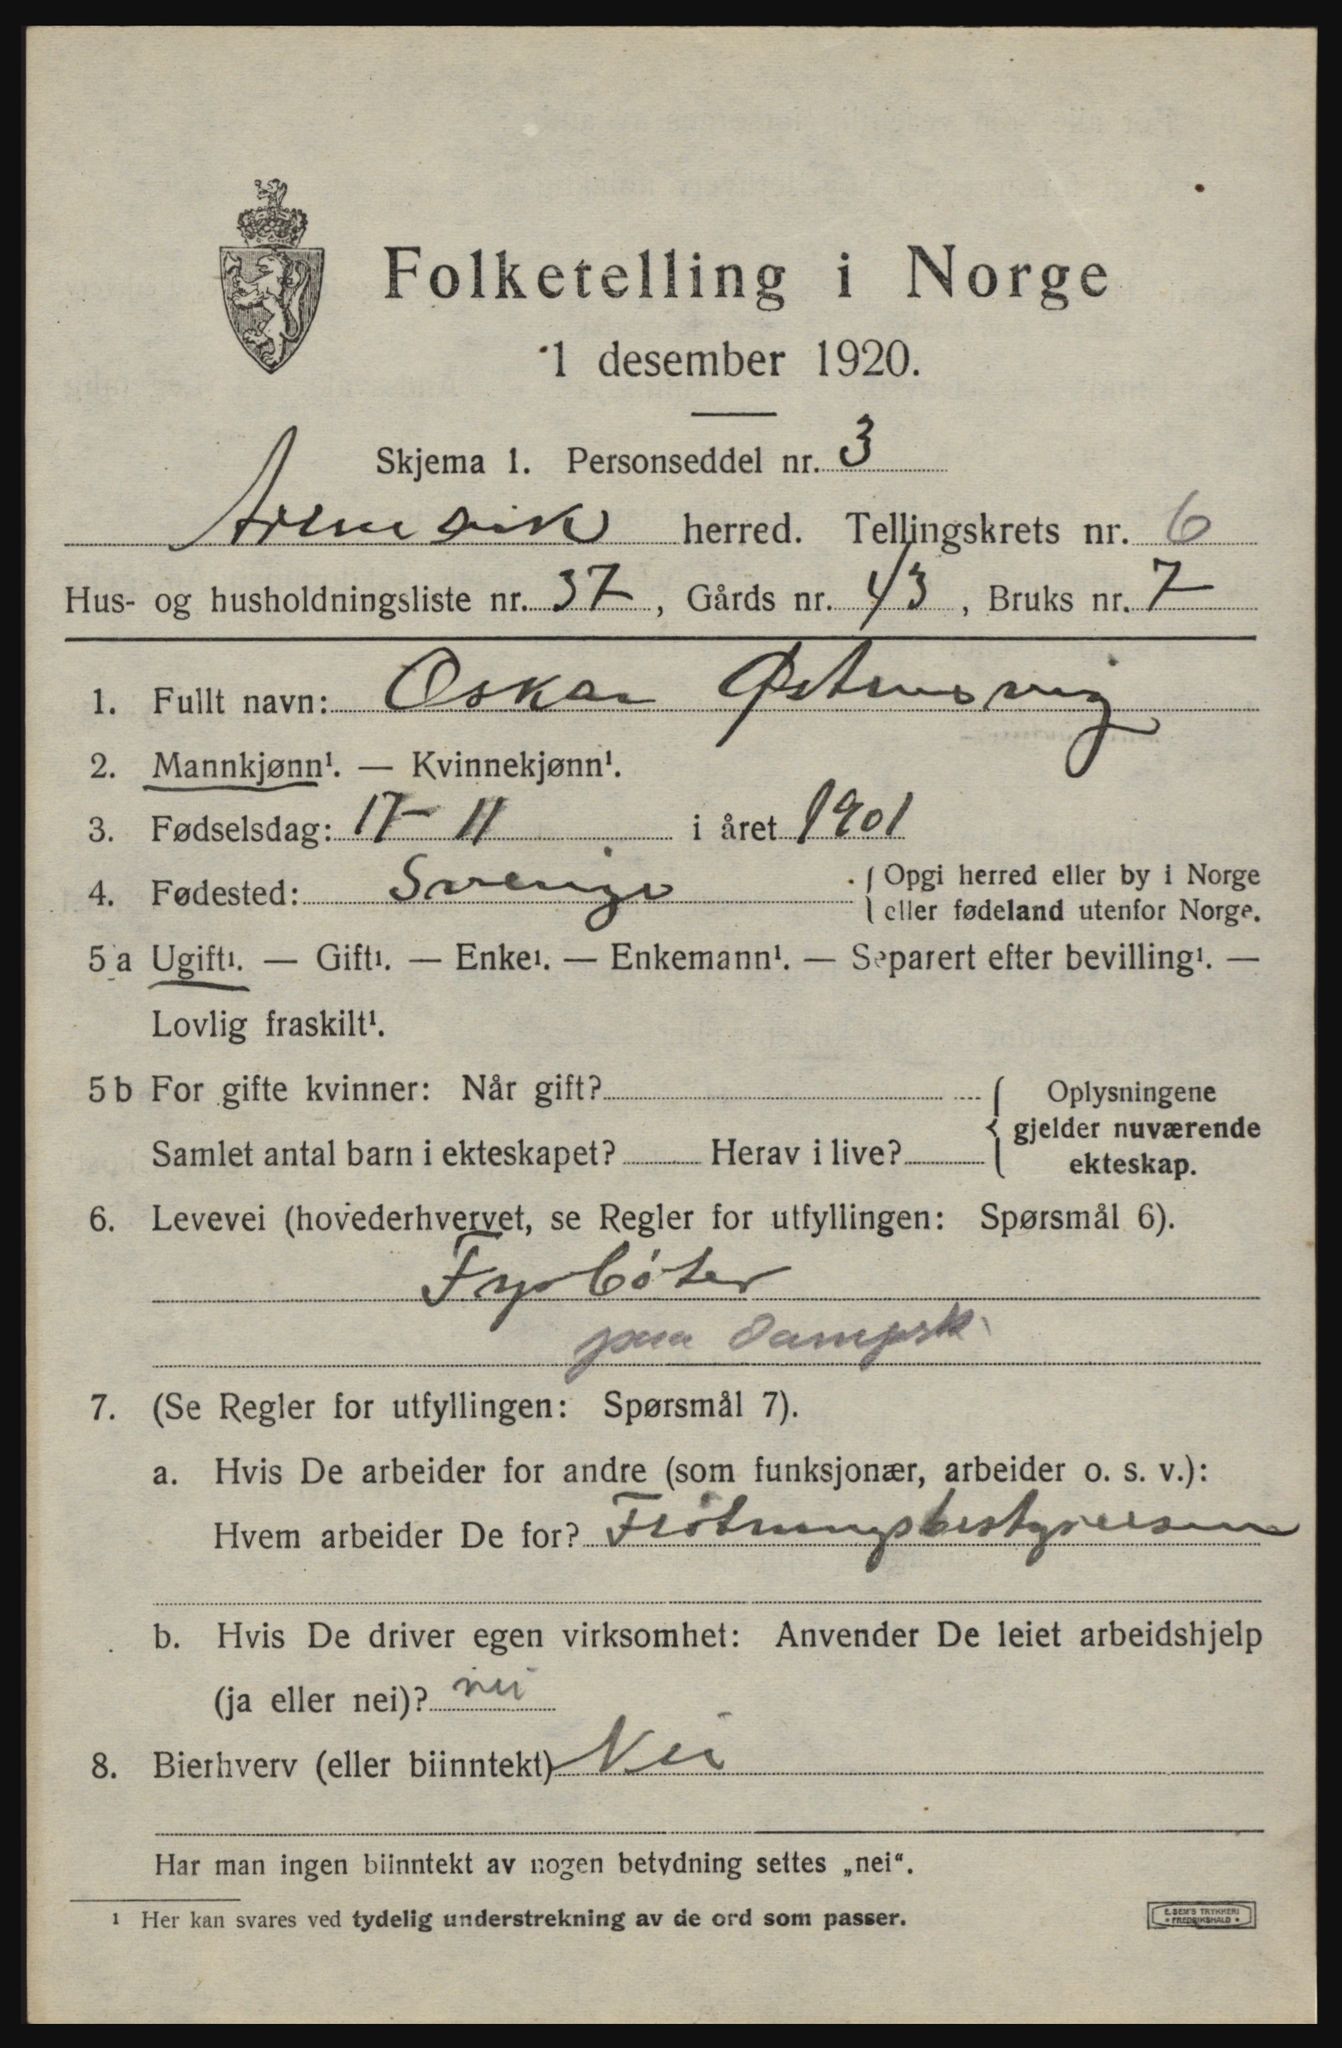 Folketelling i Norge
1 desember 1920.
Skjema 1. Personseddel nr. 3
Aremark herred. Tellingskrets nr. 6
Hus- og husholdningsliste nr. 37, Gårds nr. 43, Bruks nr. 7
1. Fullt navn: Oskar
2. Mannkjønn¹. — Kvinnekjønn¹.
3. Fødselsdag: 17-11 i året 1901
4. Fødested: Sverige
{ Opgi herred eller by i Norge
eller fødeland utenfor Norge.
5 a Ugift¹. — Gift¹. — Enke¹. — Enkemann¹. — Separert efter bevilling¹. —
Lovlig fraskilt¹.
5 b For gifte kvinner: Når gift?
Samlet antal barn i ekteskapet? Herav i live?
{ Oplysningene
gjelder nuværende
ekteskap.
6. Levevei (hovederhvervet, se Regler for utfyllingen: Spørsmål 6).
Fyrbøter
paa Dampsk.
7. (Se Regler for utfyllingen: Spørsmål 7).
a. Hvis De arbeider for andre (som funksjonær, arbeider o. s. v.):
Hvem arbeider De for? Fløtningsbestyrelsen
b. Hvis De driver egen virksomhet: Anvender De leiet arbeidshjelp
(ja eller nei)? nei
8. Bierhverv (eller biinntekt) Nei
Har man ingen biinntekt av nogen betydning settes „nei“.
¹ Her kan svares ved tydelig understrekning av de ord som passer.
E. SEM'S TRYKKERI
• FREDRIKSHALD •